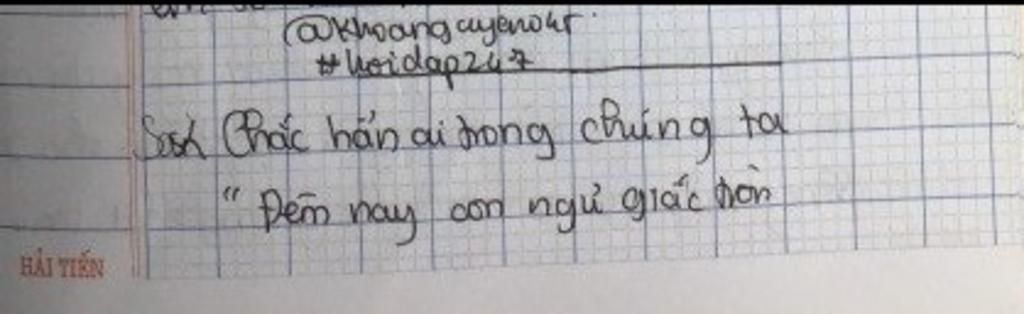 @khoanguyenotr
#hoidap247
Chắc hẳn ai trong chúng ta
“ Đêm nay con ngủ giấc tròn
HẢI TIẾN